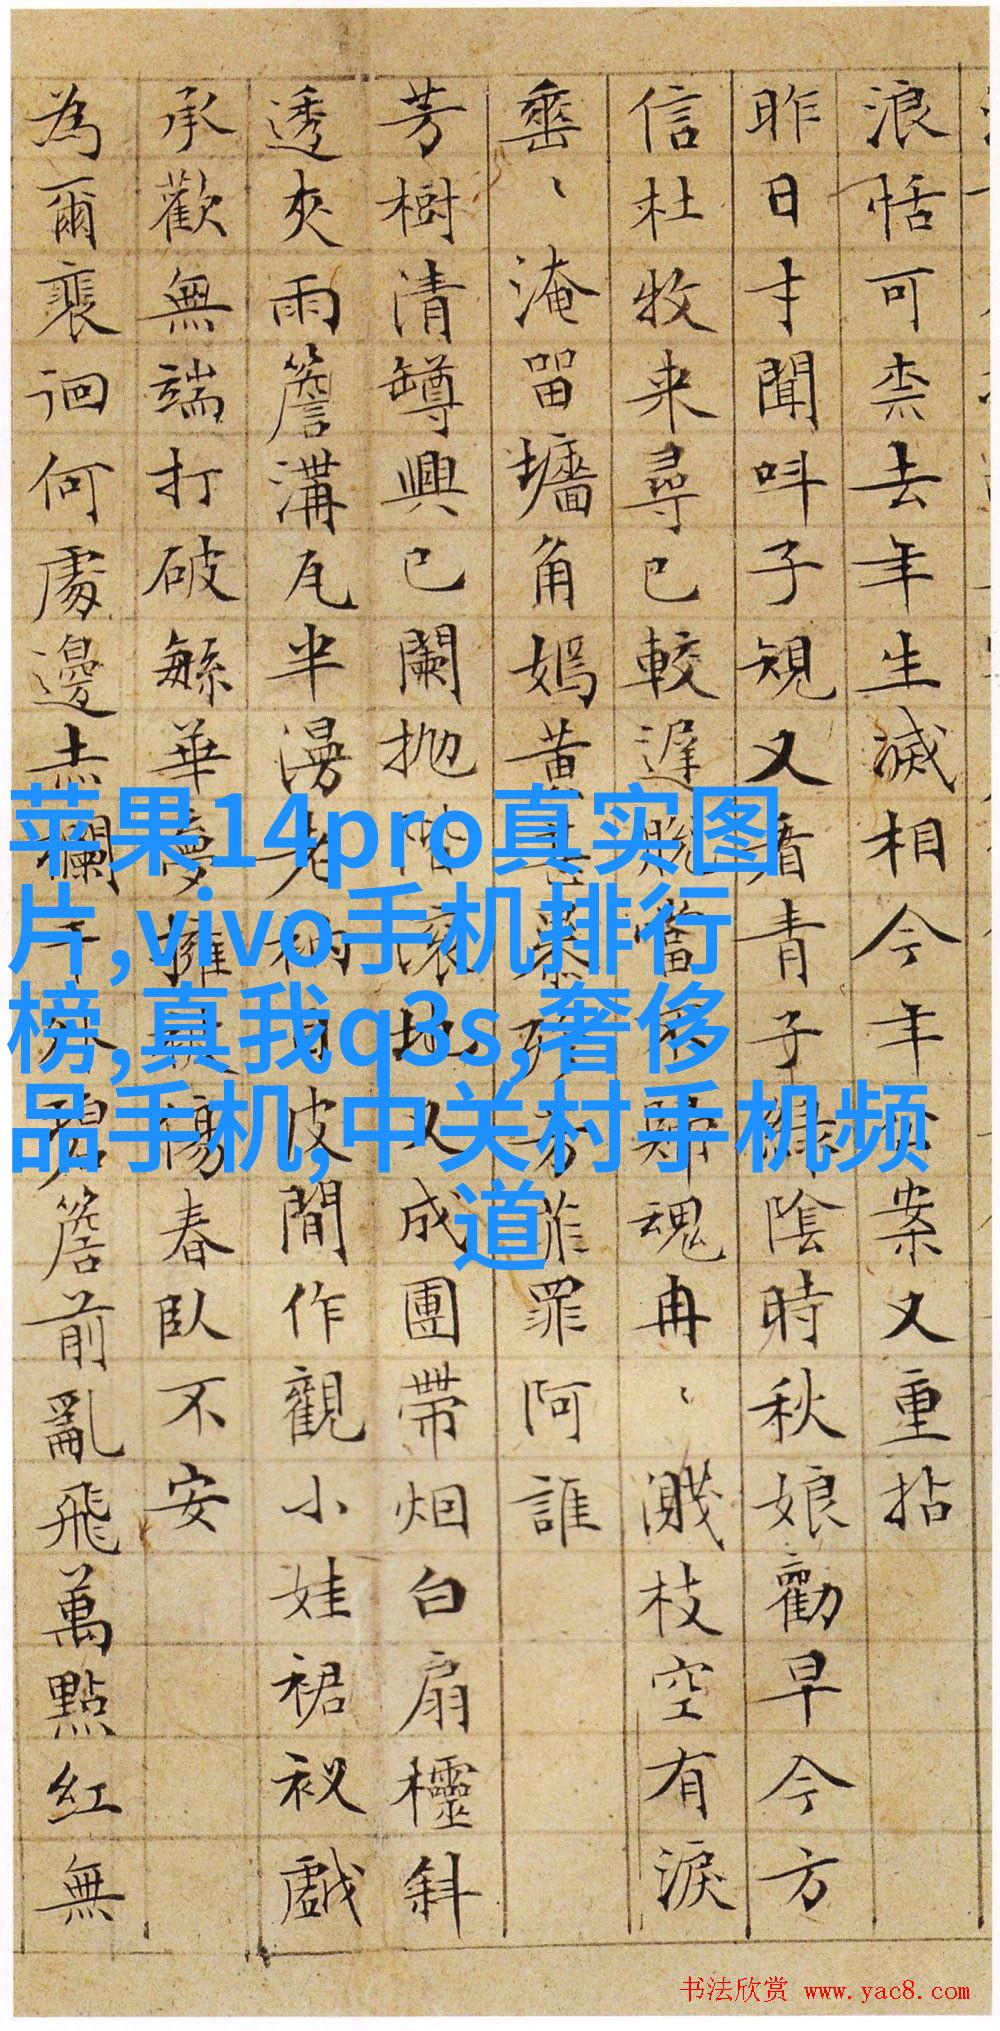 浪恬可柰去年生滅相今年案又重拈
昨日才聞呌子規又看青子綠陰時秋娘勸早今方
信杜牧来尋已較遲當魂冉、濺枝空有淚
埀、淹留墻角嫣黄芳罪阿誰
芳樹清罇興已闌抛滚地又成團帶烟白扇櫺斜
透夾雨簷溝瓦半漫老衲皮閒作觀小娃裙衩戲
承歡無端打破緐華夢擁傷春臥不安
為爾裵徊何處邊赤欄干外碧簷前亂飛萬點紅無
苹果14pro真实图
片,vivo手机排行
榜,真我q3s,奢侈
品手机,中关村手机频
道
书法欣赏 www.yac8.com